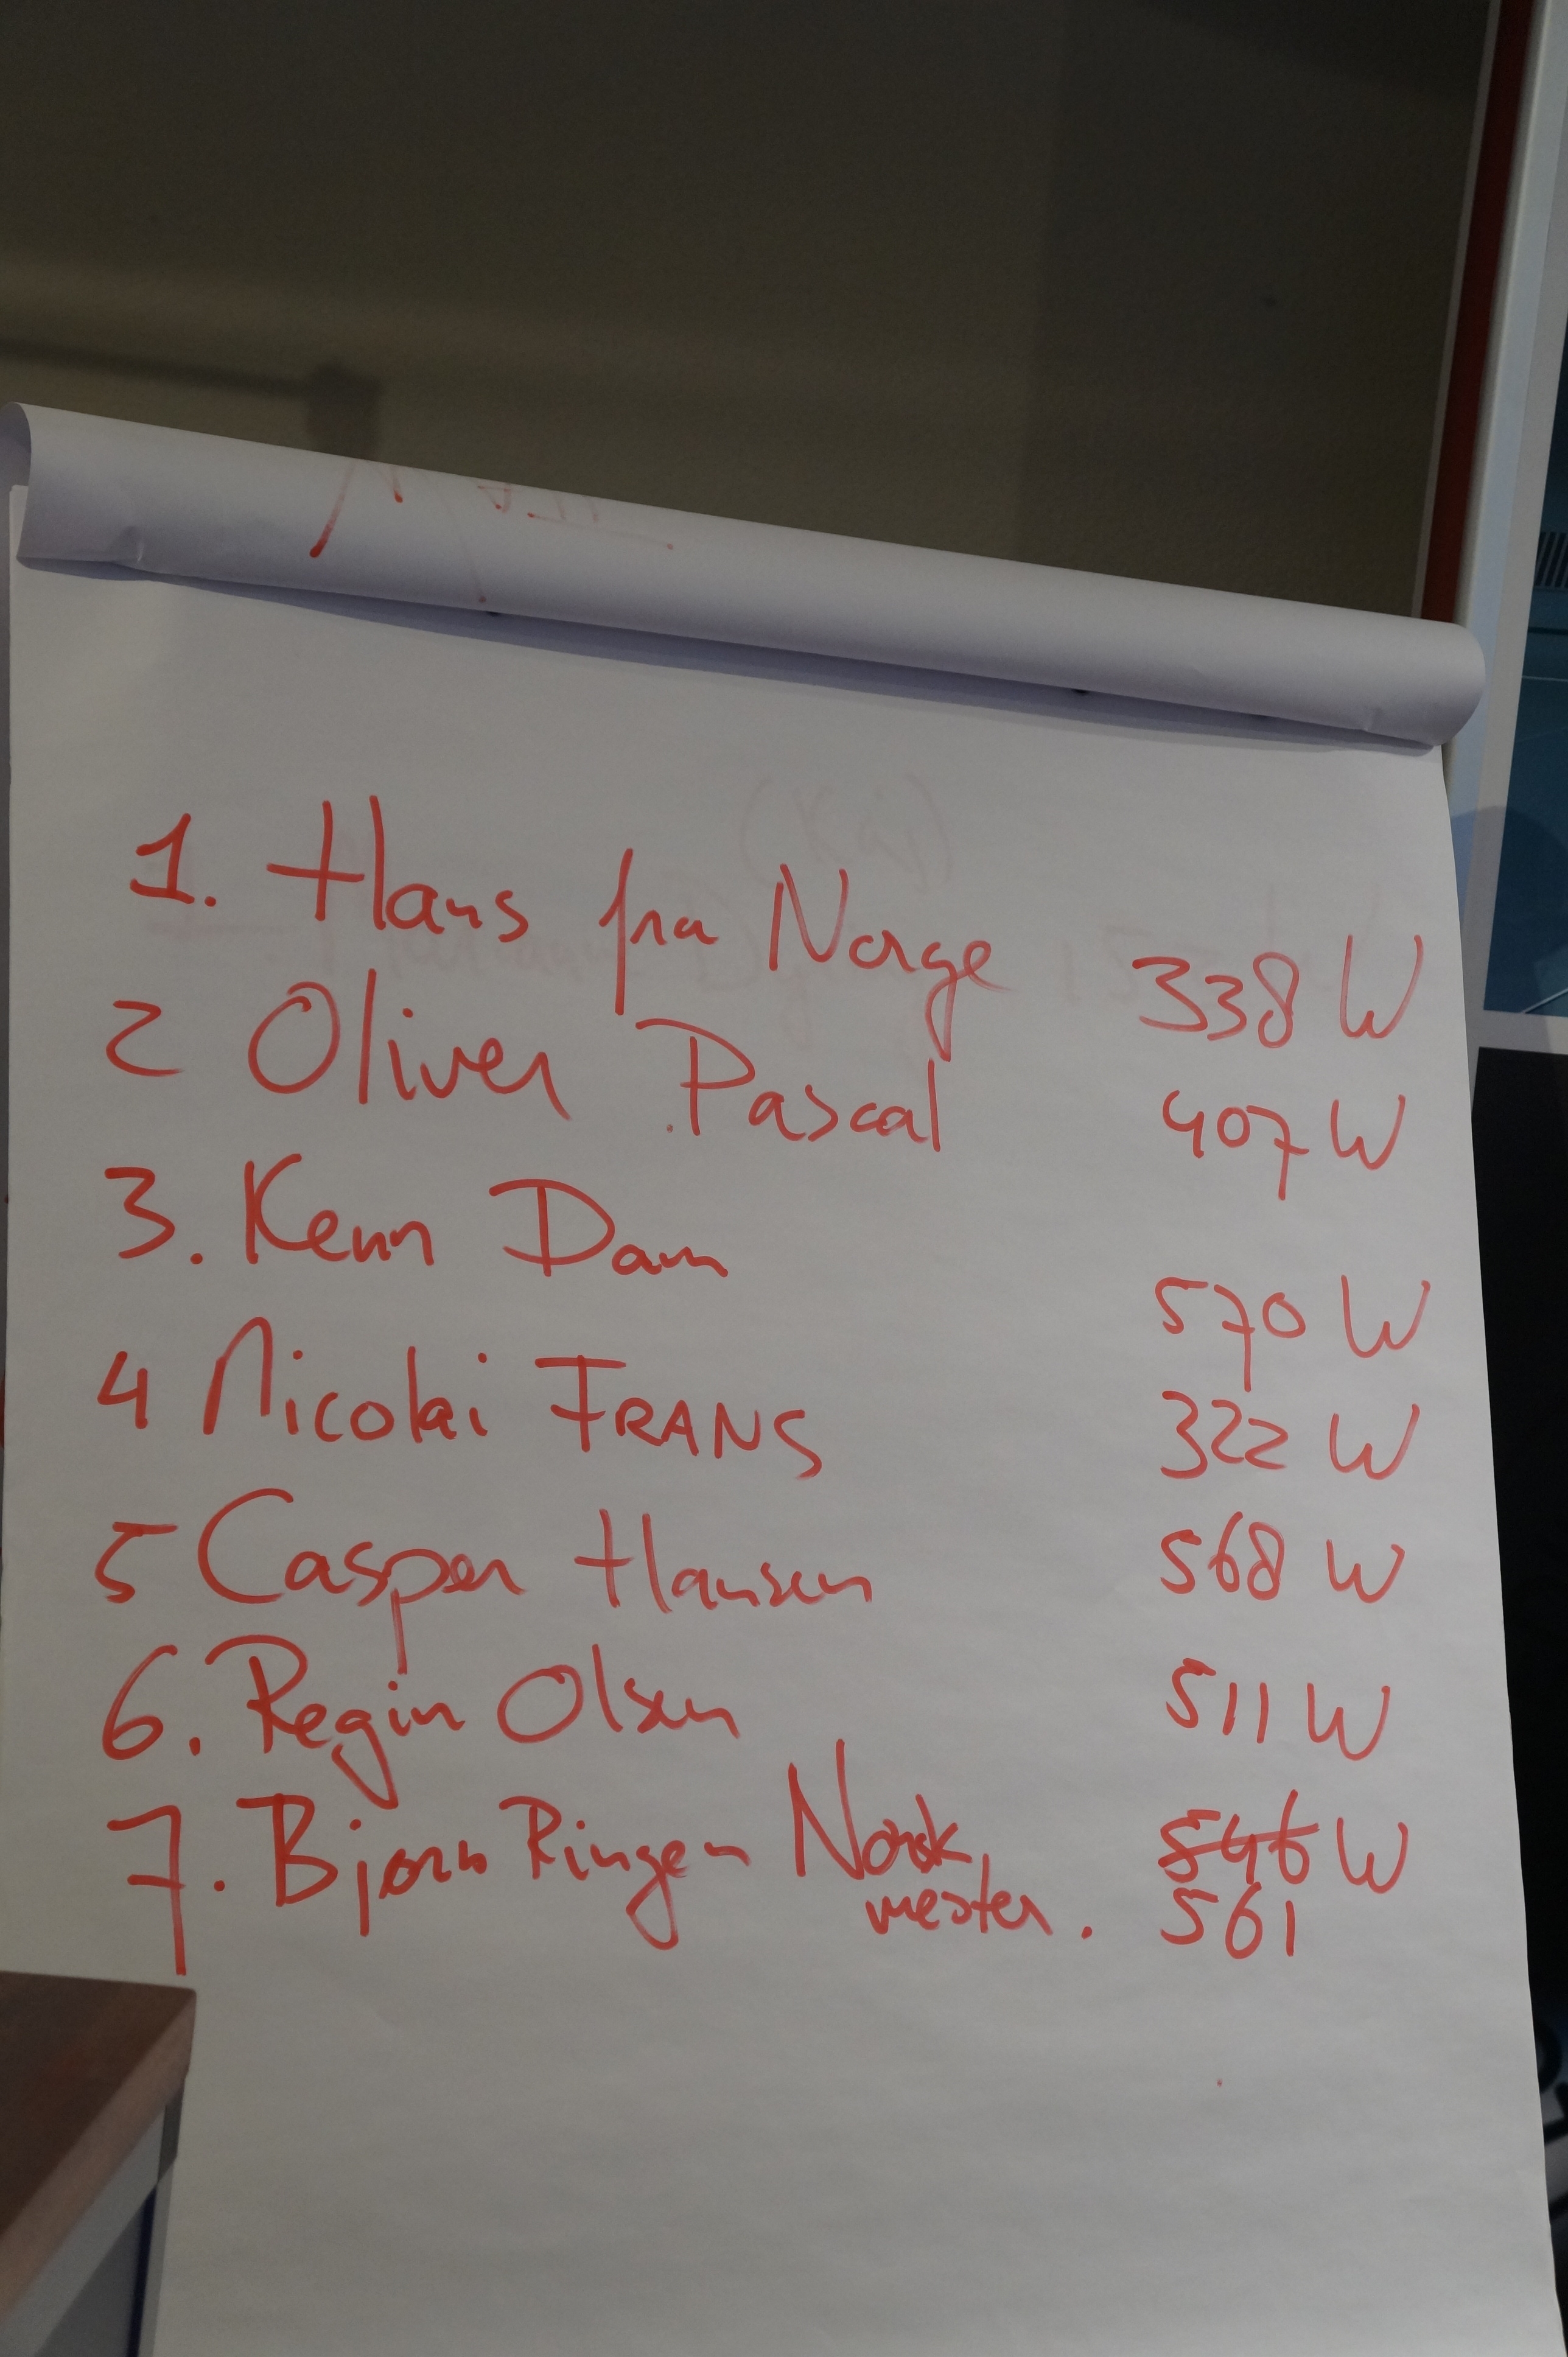 1. Hans fra Norge 338 W
2 Oliver Pascal 407 W
3. Kenn Dam 570 W
4 Nicolai FRANS 322 W
5 Casper Hansen 568 W
6. Regin Olsen 511 W
7. Bjørn Ringen Norsk 546 W
mester. 561